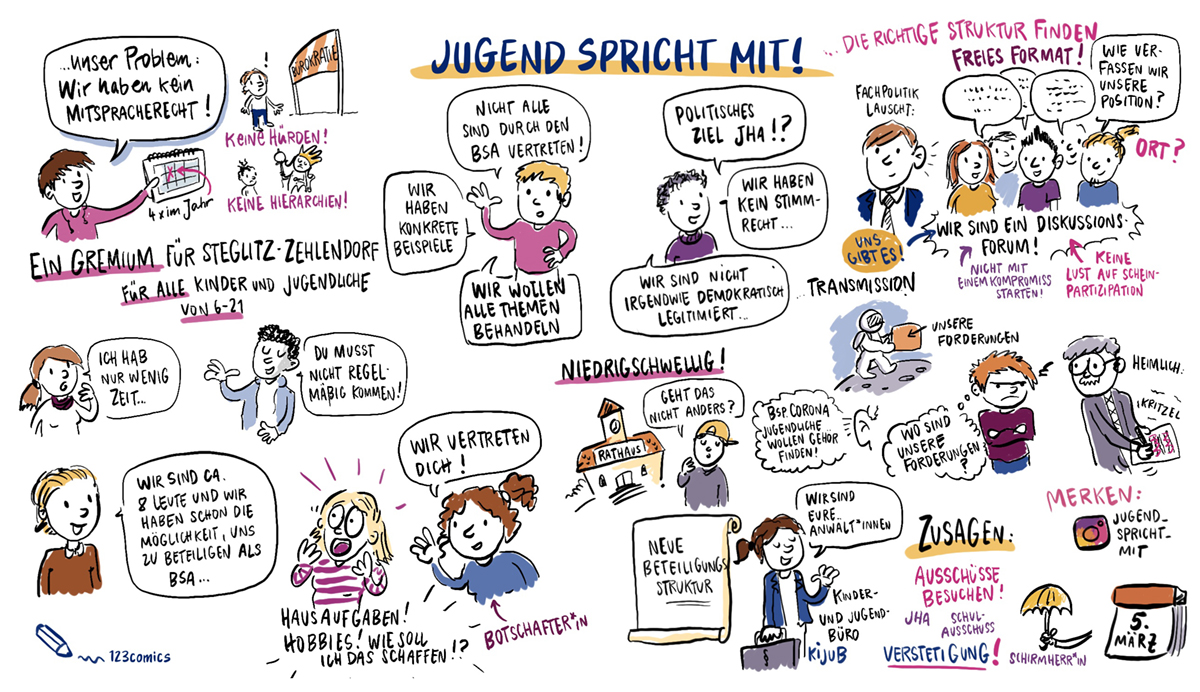 JUGEND SPRICHT MIT!
...unser Problem:
Wir haben kein
MITSPRACHERECHT!
4x im Jahr
BÜROKRATIE
!
KEINE HÜRDEN!
KEINE HIERARCHIEN!
EIN GREMIUM FÜR STEGLITZ-ZEHLENDORF
FÜR ALLE KINDER UND JUGENDLICHE
VON 6-21
ICH HAB
NUR WENIG
ZEIT...
DU MUSST
NICHT REGEL-
MÄßIG KOMMEN!
WIR SIND CA.
8 LEUTE UND WIR
HABEN SCHON DIE
MÖGLICHKEIT, UNS
ZU BETEILIGEN ALS
BSA...
HAUSAUFGABEN!
HOBBIES! WIE SOLL
ICH DAS SCHAFFEN!?
WIR VERTRETEN
DICH!
BOTSCHAFTER*IN
123comics
NICHT ALLE
SIND DURCH DEN
BSA VERTRETEN!
WIR
HABEN
KONKRETE
BEISPIELE
WIR WOLLEN
ALLE THEMEN
BEHANDELN
POLITISCHES
ZIEL JHA!?
WIR HABEN
KEIN STIMM-
RECHT...
WIR SIND NICHT
IRGENDWIE DEMOKRATISCH
LEGITIMIERT...
...DIE RICHTIGE STRUKTUR FINDEN
FREIES FORMAT!
FACHPOLITIK
LAUSCHT:
WIE VER-
FASSEN WIR
UNSERE
POSITION?
ORT?
UNS
GIBT ES!
WIR SIND EIN DISKUSSIONS-
FORUM!
NICHT MIT
EINEM KOMPROMISS
STARTEN!
KEINE
LUST AUF SCHEIN-
PARTIZIPATION
...TRANSMISSION
UNSERE
FORDERUNGEN
NIEDRIGSCHWELLIG!
RATHAUS!
GEHT DAS
NICHT ANDERS?
BSP. CORONA
JUGENDLICHE
WOLLEN GEHÖR
FINDEN!
WO SIND
UNSERE
FORDERUNGEN
?
HEIMLICH:
KRITZEL
NEUE
BETEILIGUNGS
STRUKTUR
WIR SIND
EURE
ANWALT*INNEN
KINDER-
UND JUGEND-
BÜRO
KiJuB
ZUSAGEN:
AUSSCHÜSSE
BESUCHEN!
JHA
SCHUL-
AUSSCHUSS
VERSTETIGUNG!
MERKEN:
JUGEND_
SPRICHT_
MIT
SCHIRMHERR*IN
5.
MÄRZ